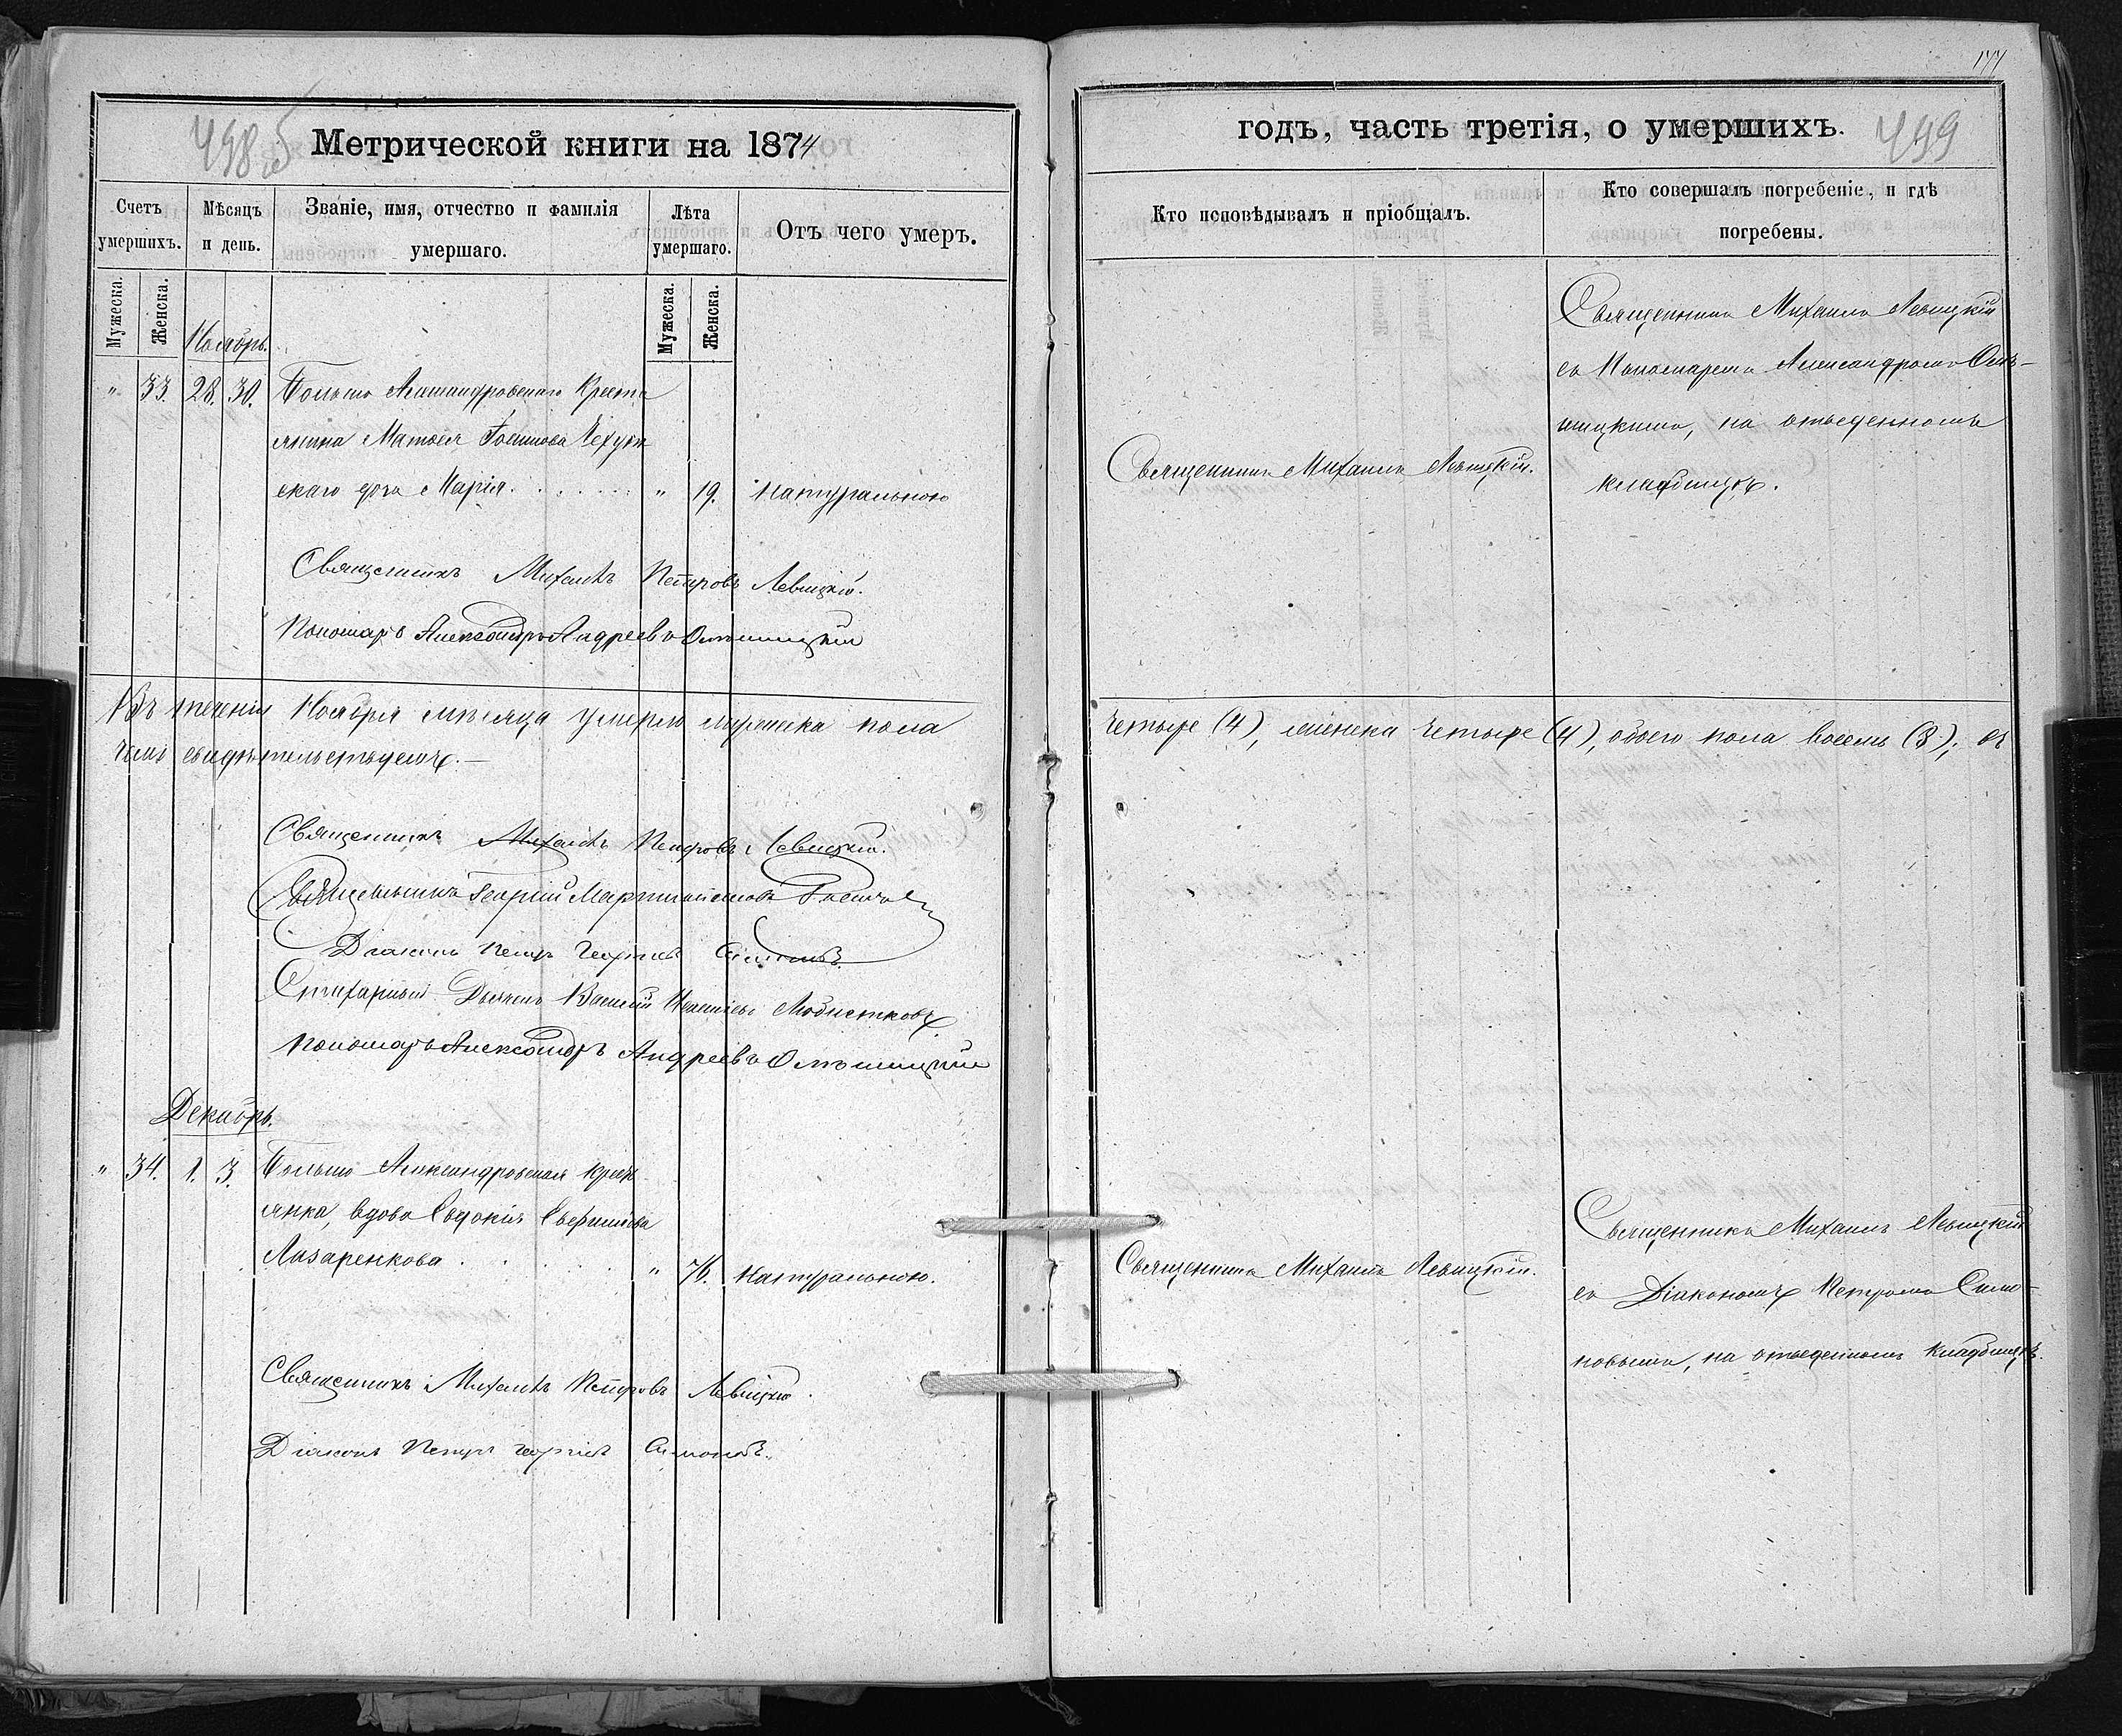 498 об
Метрической книги на 1874
Счетъ умершихъ.
Мѣсяцъ и день.
Званіе, имя, отчество и фамилія умершаго.
Лѣта умершаго.
Отъ чего умеръ.
Мужеска.
Женска.
Мужеска.
Женска.
Ноябрь.
" 33. 28. 30. Больше Александровскаго Кресть
янина Матвея
скаго дочь Марія. " 19. Натуральною
Священникъ Михаилъ Петровъ Левицкій.
Пономарь Александръ Андреевъ
Въ теченіи Ноября мѣсяца умерло мужеска пола
чемъ свидѣтельствуемъ.—
Священникъ Михаилъ Петровъ Левицкій.
Священникъ Георгій
Діаконъ Петръ Георгіевъ Симоновъ.
Стихарный Дьячекъ Василій
Пономарь Александръ Андреевъ
Декабрь.
" 34. 1. 3. Больше Александровская крест
янка, вдова Евдокія
Лазаренкова " 76. Натуральною.
Священникъ Михаилъ Петровъ Левицкій.
Діаконъ Петръ Георгіевъ Симоновъ.
177
годъ, часть третія, о умершихъ.
499
Кто исповѣдывалъ и пріобщалъ.
Кто совершалъ погребеніе, и гдѣ
погребены.
Священникъ Михаилъ Левицкій.
Священникъ Михаилъ Левицкій
съ Пономаремъ Александромъ
на отведенномъ
кладбищѣ.
четыре (4), женска четыре (4), обоего пола восемь (8); въ
Священникъ Михаилъ Левицкій.
Священникъ Михаилъ Левицкій
съ Діакономъ Петромъ Симо-
новымъ, на отведенномъ кладбищѣ.